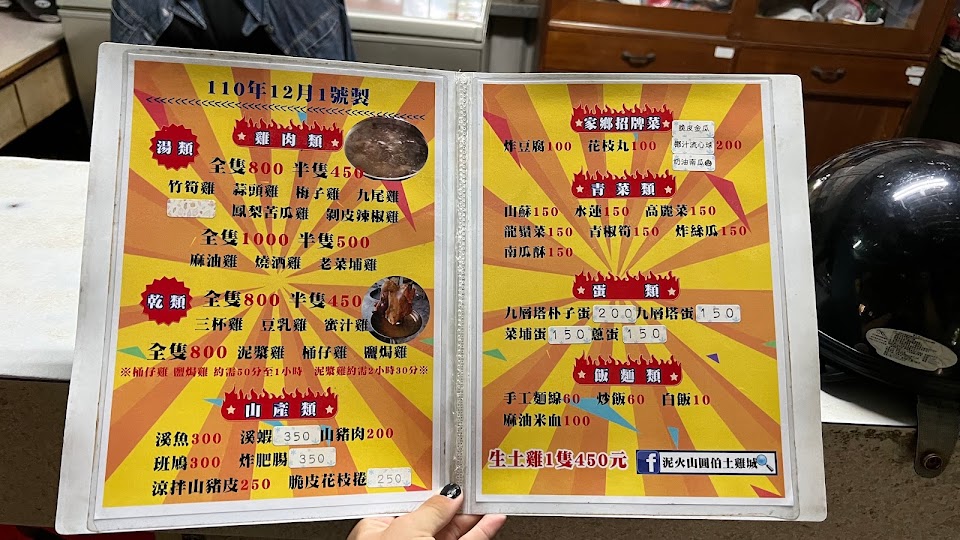 110年12月1號製
湯類
雞肉類
全隻800 半隻450
竹筍雞 蒜頭雞 梅子雞 九尾雞
鳳梨苦瓜雞 剝皮辣椒雞
全隻1000 半隻500
麻油雞 燒酒雞 老菜埔雞
乾類
全隻800 半隻450
三杯雞 豆乳雞 蜜汁雞
全隻800 泥漿雞 桶仔雞 鹽焗雞
※桶仔雞 鹽焗雞 約需50分至1小時 泥漿雞約需2小時30分※
山產類
溪魚300 溪蝦350 山豬肉200
班鳩300 炸肥腸350
涼拌山豬皮250 脆皮花枝捲250
家鄉招牌菜
炸豆腐100 花枝丸100
脆皮金瓜
椰汁流心球
奶油南瓜
200
青菜類
山蘇150 水蓮150 高麗菜150
龍鬚菜150 青椒筍150 炸絲瓜150
南瓜酥150
蛋類
九層塔朴子蛋200 九層塔蛋150
菜埔蛋150 蔥蛋150
飯麵類
手工麵線60 炒飯60 白飯10
麻油米血100
生土雞1隻450元
f 泥火山圓伯土雞城